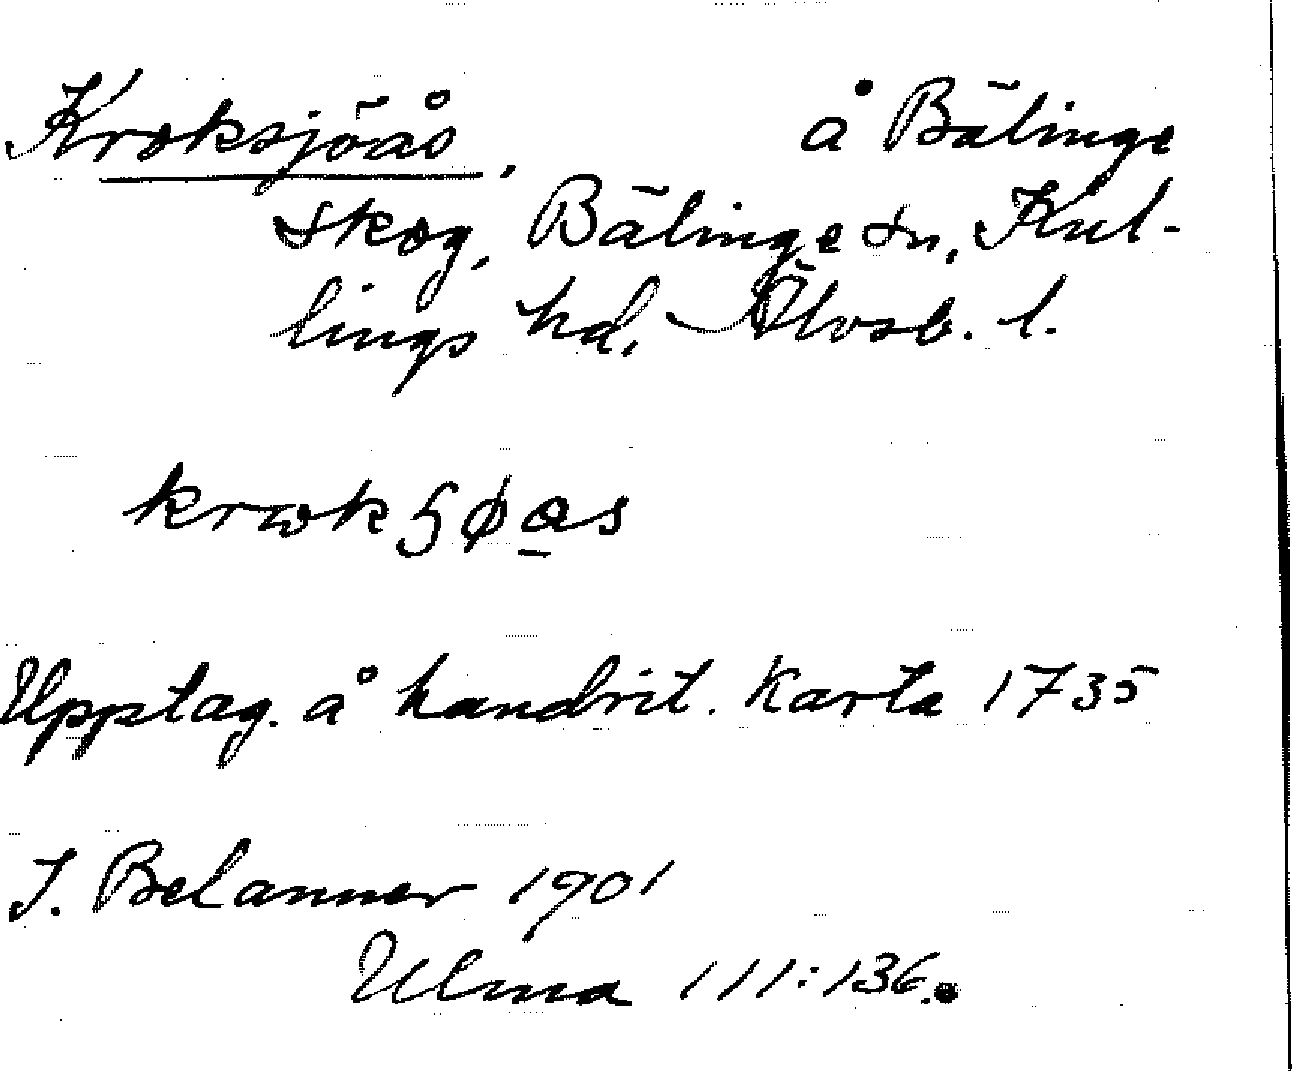 Kroksjöås, å Bälinge
skog, Bälinge sn, Kul-
lings hd, Älvsb. l.
Upptag. å handrit. karta 1735
J. Belanner 1901
Ulma 111:136.